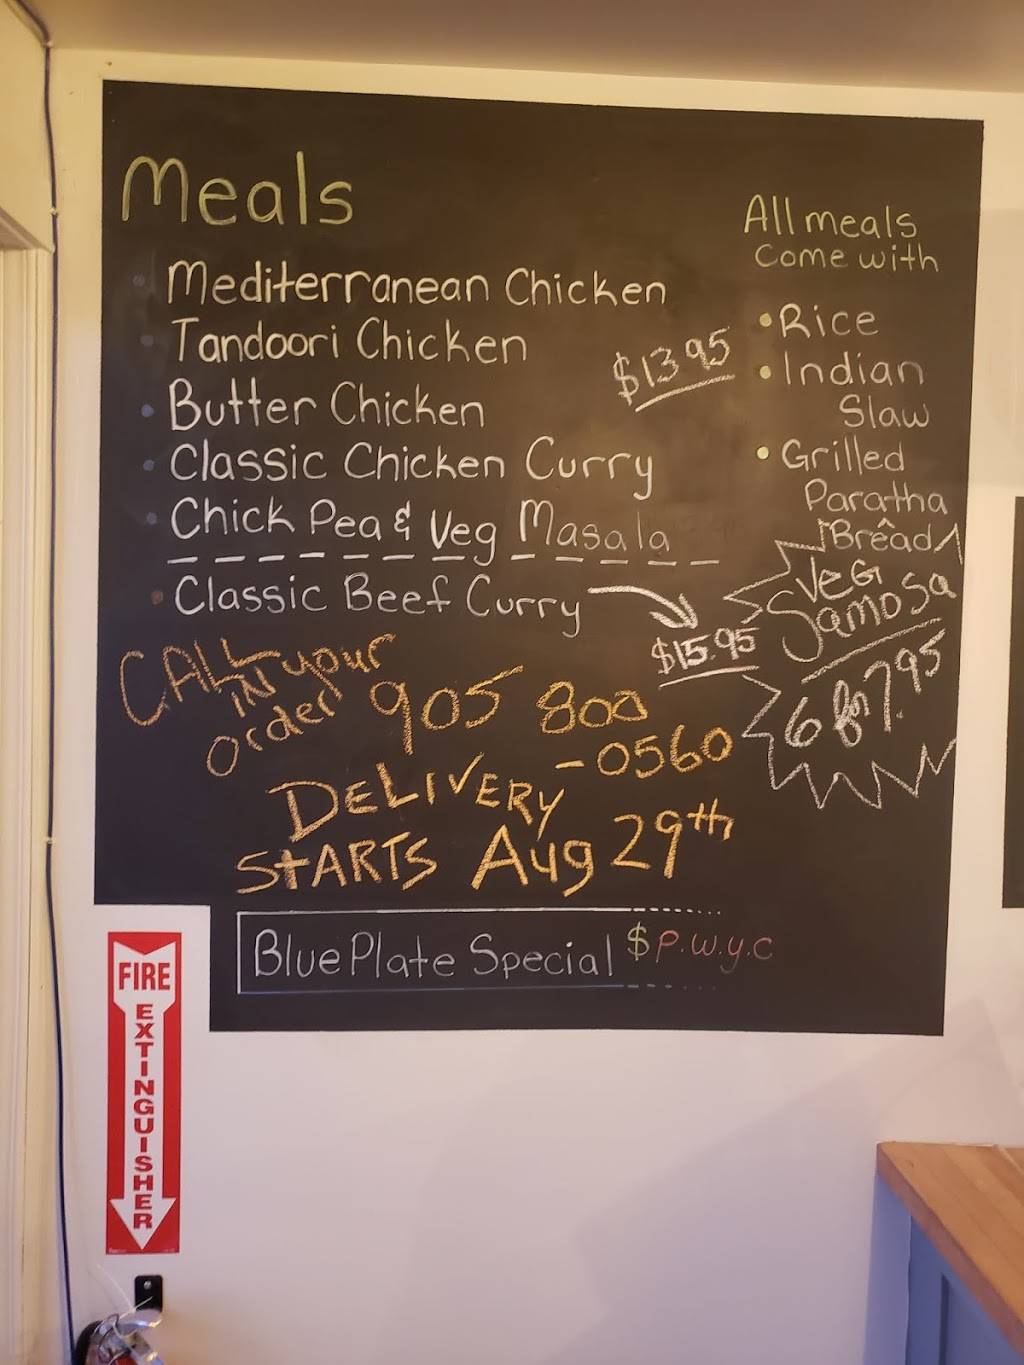 Meals
Mediterranean Chicken
Tandoori Chicken
Butter Chicken
Classic Chicken Curry
Chick Pea & Veg Masala
$13.95
Classic Beef Curry
$15.95
All meals
come with
Rice
Indian
Slaw
Grilled
Paratha
Brêad
Veg
Samosa
6 for 7.95
CALL
IN your
order
905 800
-0560
DELIVERY
STARTS Aug 29th
Blue Plate Special $P.W.Y.C
FIRE
EXTINGUISHER